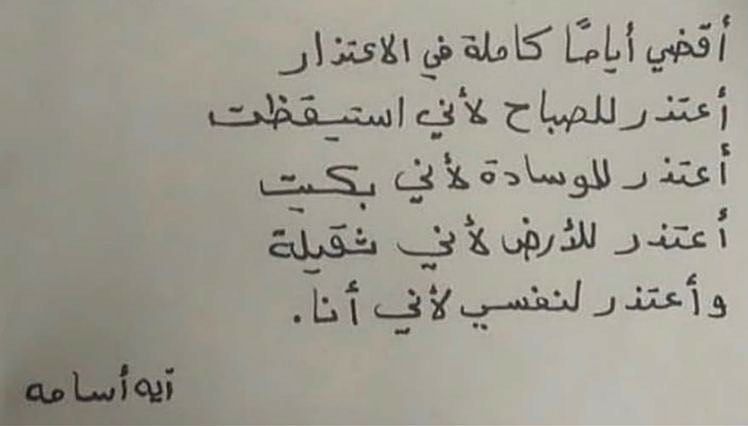 أقضي أيامًا كاملة في الاعتذار
أعتذر للصباح لأني استيقظت
أعتذر للوسادة لأني بكيت
أعتذر للأرض لأني ثقيلة
وأعتذر لنفسي لأني أنا.
آيه أسامه